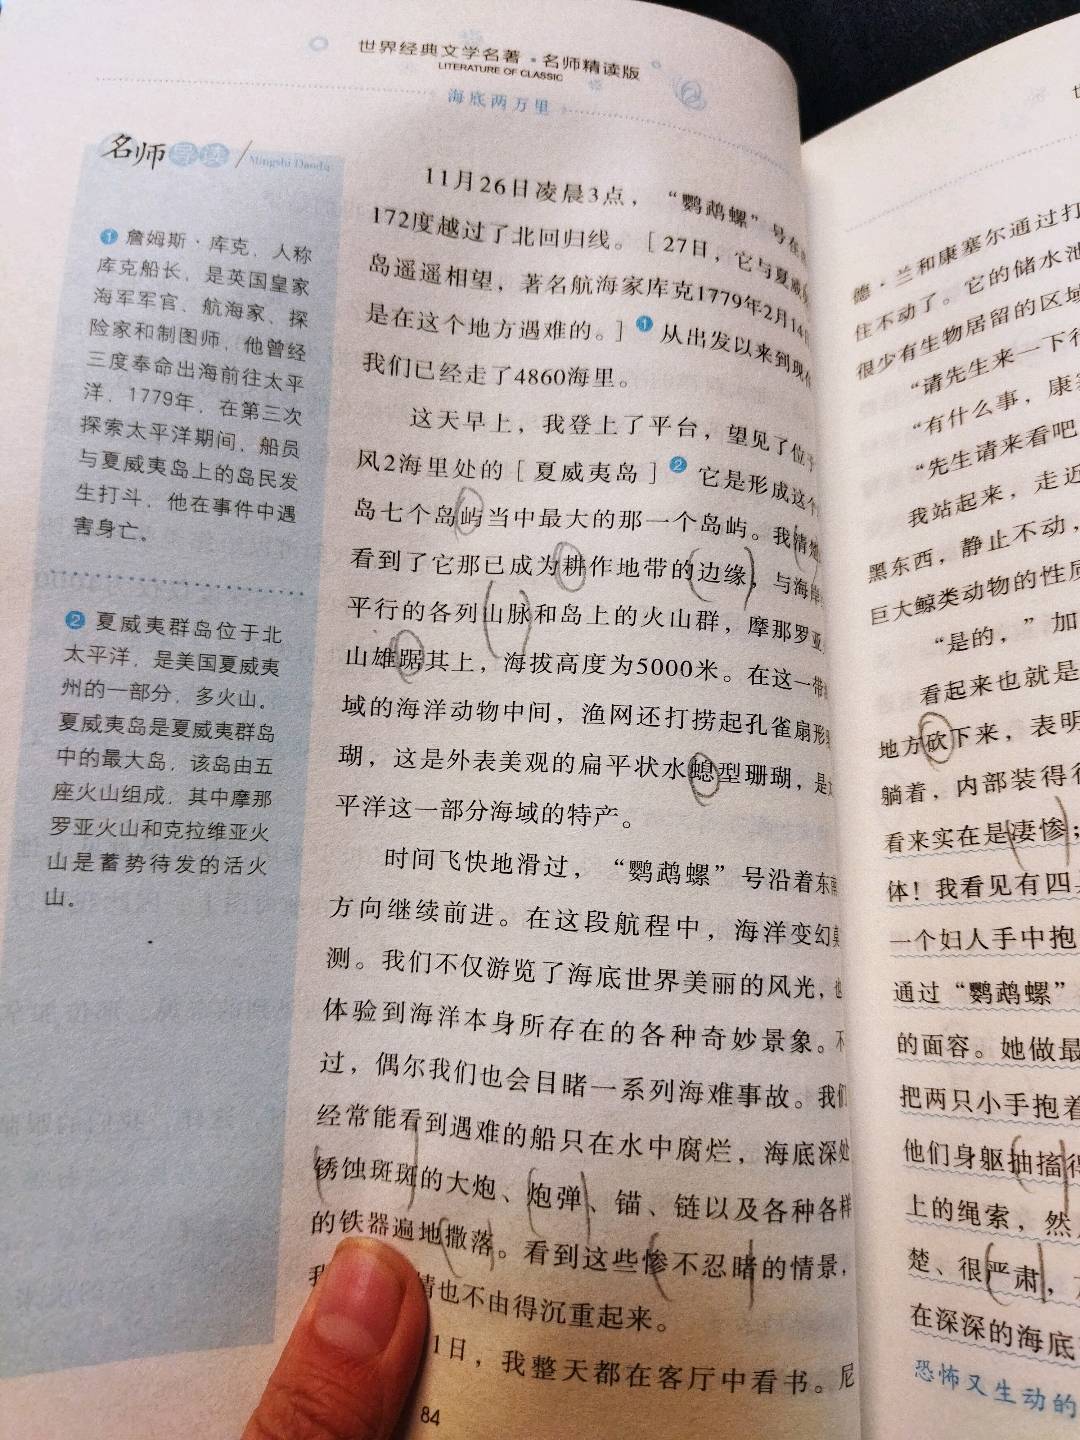 世界经典文学名著·名师精读版
LITERATURE OF CLASSIC
海底两万里
名师导读 Mingshi Daodu
❶ 詹姆斯·库克，人称
库克船长，是英国皇家
海军军官、航海家、探
险家和制图师，他曾经
三度奉命出海前往太平
洋，1779年，在第三次
探索太平洋期间，船员
与夏威夷岛上的岛民发
生打斗，他在事件中遇
害身亡。
❷ 夏威夷群岛位于北
太平洋，是美国夏威夷
州的一部分，多火山。
夏威夷岛是夏威夷群岛
中的最大岛，该岛由五
座火山组成，其中摩那
罗亚火山和克拉维亚火
山是蓄势待发的活火
山。
11月26日凌晨3点，“鹦鹉螺”号在
172度越过了北回归线。［27日，它与夏威
岛遥遥相望，著名航海家库克1779年2月14
是在这个地方遇难的。］❶从出发以来到现
我们已经走了4860海里。
这天早上，我登上了平台，望见了位于
风2海里处的［夏威夷岛］❷它是形成这个
岛七个岛屿当中最大的那一个岛屿。我清
看到了它那已成为耕作地带的边缘，与海岸
平行的各列山脉和岛上的火山群，摩那罗亚
山雄踞其上，海拔高度为5000米。在这一带
域的海洋动物中间，渔网还打捞起孔雀扇形
瑚，这是外表美观的扁平状水螅型珊瑚，是
平洋这一部分海域的特产。
时间飞快地滑过，“鹦鹉螺”号沿着东南
方向继续前进。在这段航程中，海洋变幻莫
测。我们不仅游览了海底世界美丽的风光，也
体验到海洋本身所存在的各种奇妙景象。不
过，偶尔我们也会目睹一系列海难事故。我们
经常能看到遇难的船只在水中腐烂，海底深处
锈蚀斑斑的大炮、炮弹、锚、链以及各种各样
的铁器遍地撒落。看到这些惨不忍睹的情景，
我 情也不由得沉重起来。
1日，我整天都在客厅中看书。尼
84
德·兰和康塞尔通过打
住不动了。它的储水池
很少有生物居留的区域
“请先生来一下行
“有什么事，康
“先生请来看吧
我站起来，走近
黑东西，静止不动，
巨大鲸类动物的性质
“是的，”加
看起来也就是
地方砍下来，表明
躺着，内部装得
看来实在是凄惨；
体！我看见有四
一个妇人手中抱
通过“鹦鹉螺”
的面容。她做最
把两只小手抱着
他们身躯抽搐得
上的绳索，然
楚、很严肃，
在深深的海底
恐怖又生动的